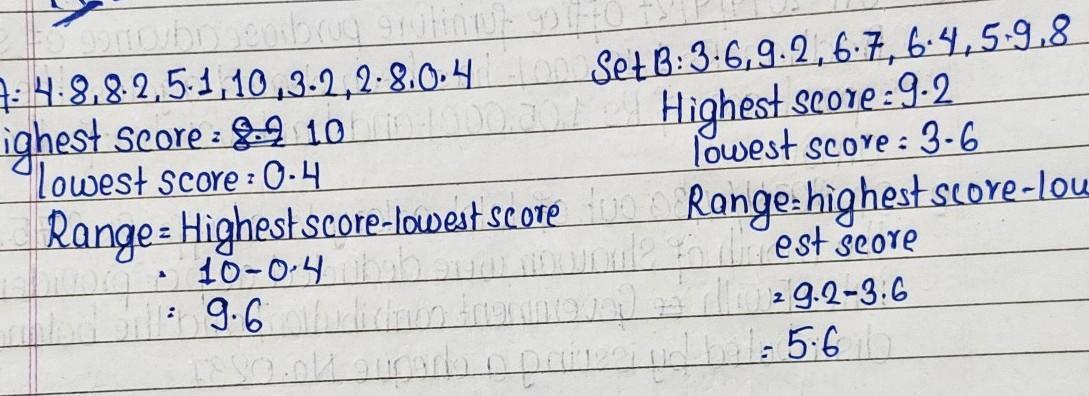 A: 4.8, 8.2, 5.1, 10, 3.2, 2.8, 0.4
ighest score = 8.2 10
lowest score: 0.4
Range = Highest score-lowest score
10-0.4
= 9.6
Set B: 3.6, 9.2, 6.7, 6.4, 5.9, 8
Highest score = 9.2
lowest score = 3.6
Range = highest score-low
est score
= 9.2-3.6
= 5.6